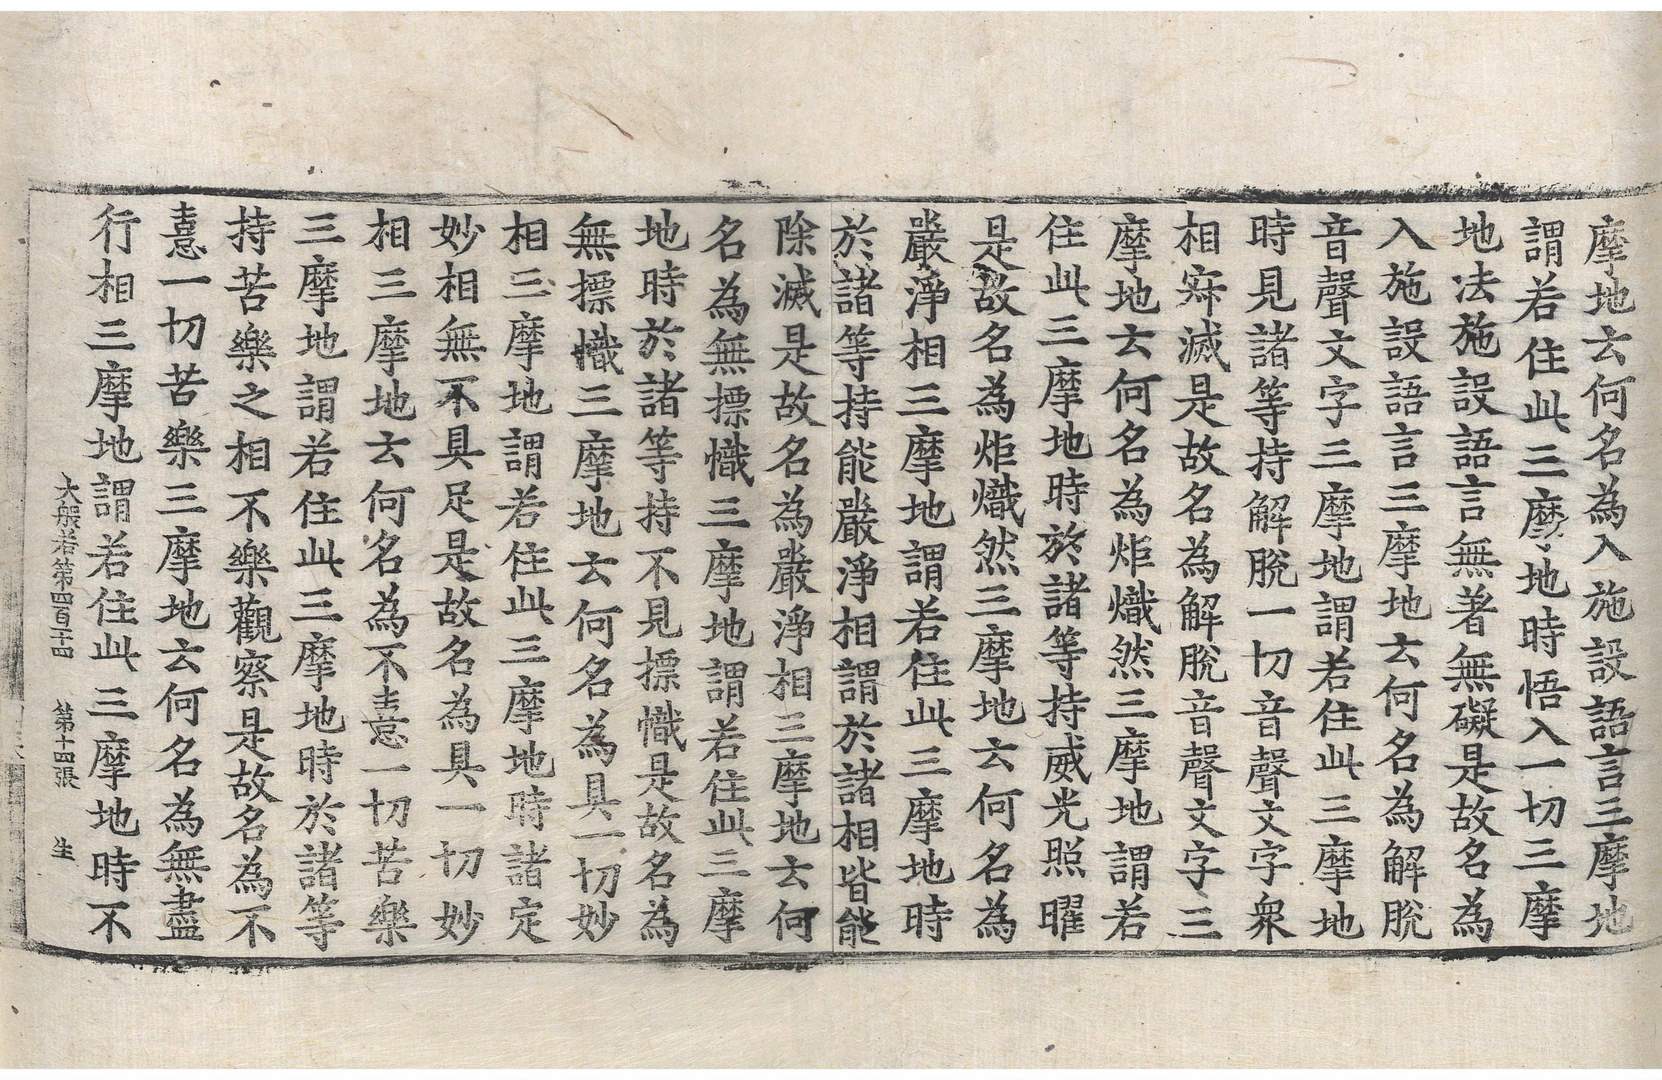 摩地云何名為入施設語言三摩地
謂若住此三摩地時悟入一切三摩
地法施設語言無著無礙是故名為
入施設語言三摩地云何名為解脫
音聲文字三摩地謂若住此三摩地
時見諸等持解脫一切音聲文字衆
相寂滅是故名為解脫音聲文字三
摩地云何名為炬熾然三摩地謂若
住此三摩地時於諸等持威光照曜
是故名為炬熾然三摩地云何名為
嚴淨相三摩地謂若住此三摩地時
於諸等持能嚴淨相謂於諸相皆能
除滅是故名為嚴淨相三摩地云何
名為無摽幟三摩地謂若住此三摩
地時於諸等持不見摽幟是故名為
無摽幟三摩地云何名為具一切妙
相三摩地謂若住此三摩地時諸定
妙相無不具足是故名為具一切妙
相三摩地云何名為不憙一切苦樂
三摩地謂若住此三摩地時於諸等
持苦樂之相不樂觀察是故名為不
憙一切苦樂三摩地云何名為無盡
行相三摩地謂若住此三摩地時不
大般若第四百十四 第十四張 生